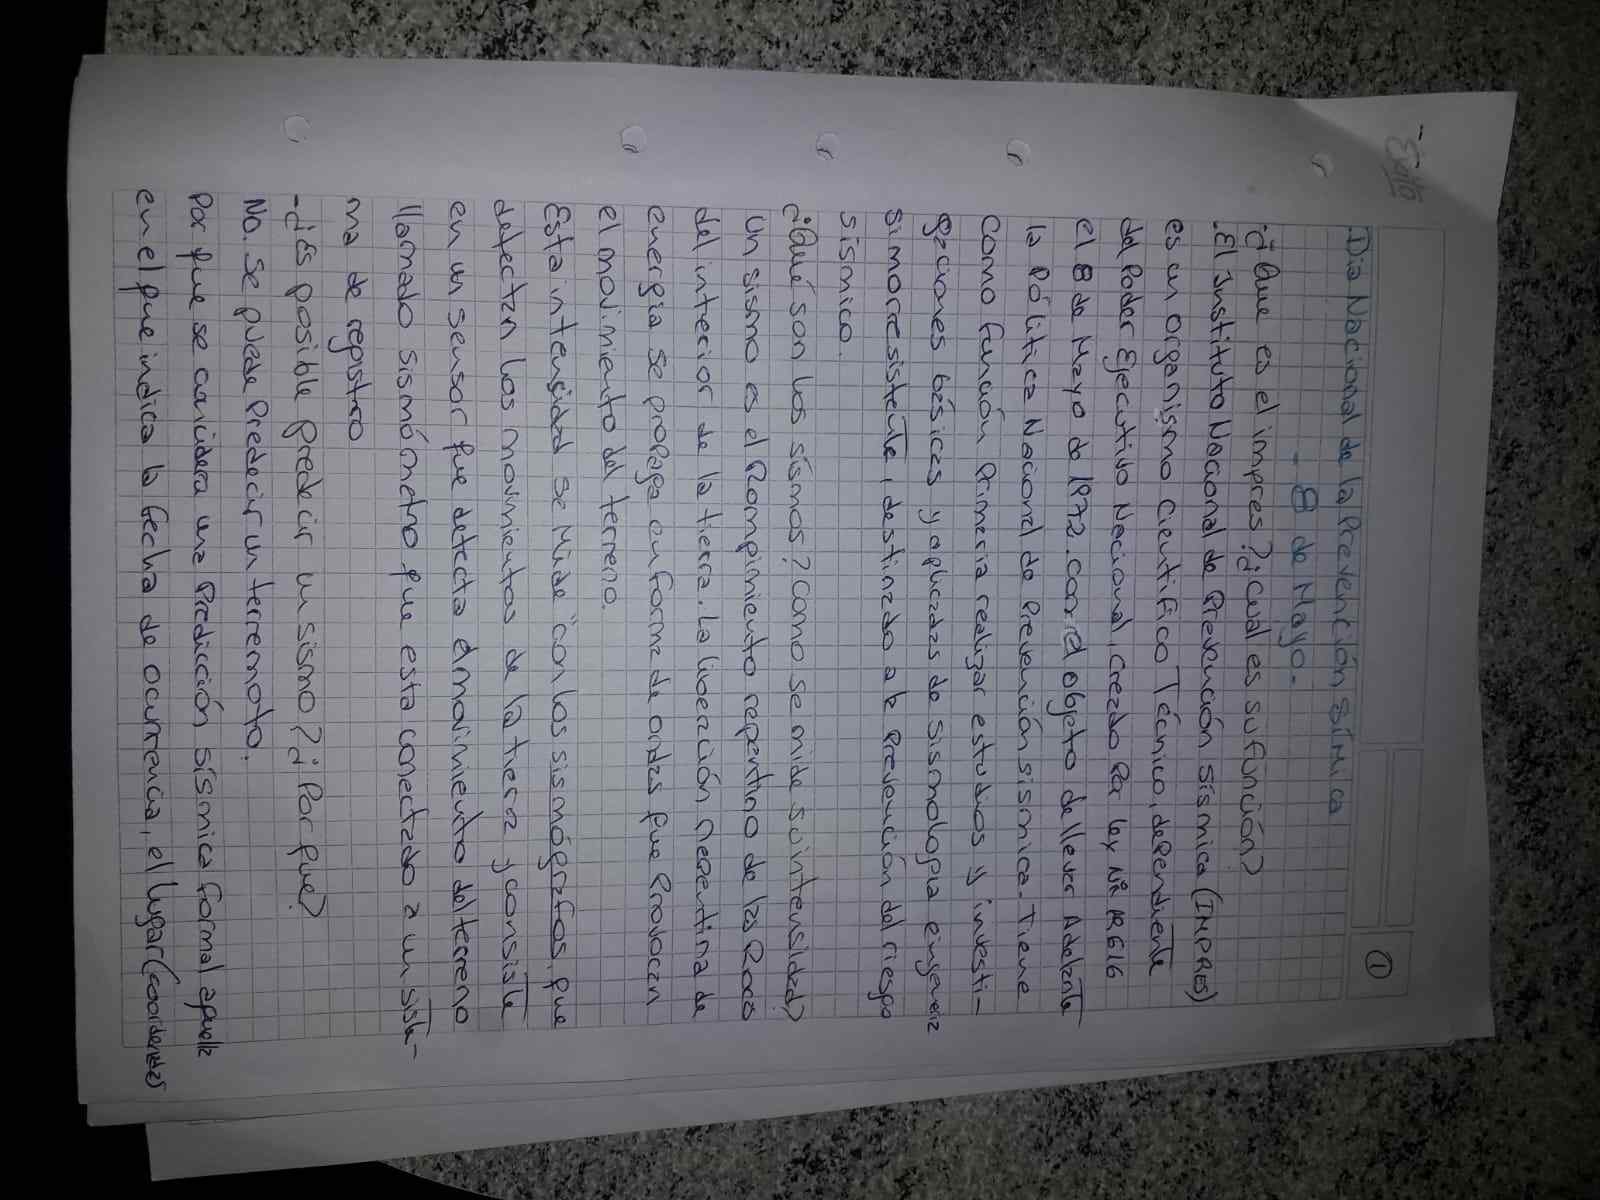 ①
Día Nacional de la Prevención Sísmica
- 8 de Mayo.
¿Que es el impres? ¿Cual es su función?
.El Instituto Nacional de Prevención sísmica (INPRES)
es un organismo Cientifico Técnico, dependiente
del Poder Ejecutivo Nacional, creado Por ley Nº 19.616
el 8 de Mayo de 1972. con el objeto de llevar Adelante
la Pólitica Nacional de Prevención sismica. Tiene
como función Primaria realizar estudios y investi-
gaciones básicas y aplicadas de sismologia e ingenieria
simorresistente, destinado a la Prevención del riesgo
sísmico.
¿Qué son los sísmos? Como se mide su intensidad?
Un sismo es el Rompimiento repentino de las Rocas
del interior de la tierra. la liberación repentina de
energía se propaga en forma de ondas que Provocan
el movimiento del terreno.
Esta intensidad se Mide "con los sismógrafos, que
detectan los movimientos de la tierra y consiste
en un sensor que detecta el movimiento del terreno
llamado sismómetro que esta conectado a un siste-
ma de registro
-¿Es posible predecir un sismo? ¿Por que?
No. se puede Predecir un terremoto.
Por que se considera una Predicción sísmica formal aquella
en el que indica la fecha de ocurrencia, el lugar (coordenadas